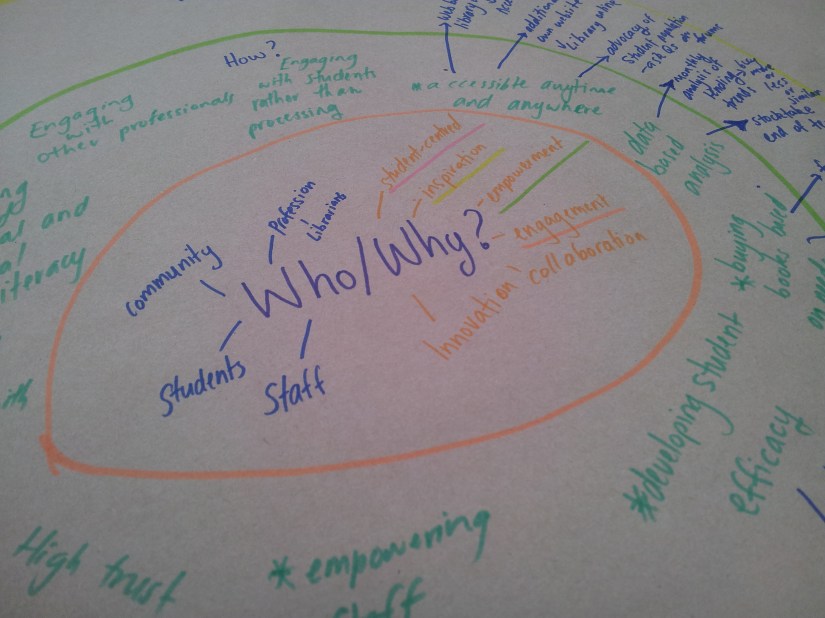 How?
Engaging
with
other professionals
Engaging
with students
rather than
processing
*accessible anytime
and anywhere
library
additional
own website
library online
advocacy of
student population
monthly
analysis of
trends
stocktake
end of
data
based
analysis
*buying
books based
*developing student
efficacy
as and
literacy
Who/Why?
Profession
Librarians
community
Students
Staff
student-centred
inspiration
empowerment
engagement
collaboration
Innovation
High trust
*empowering
staff